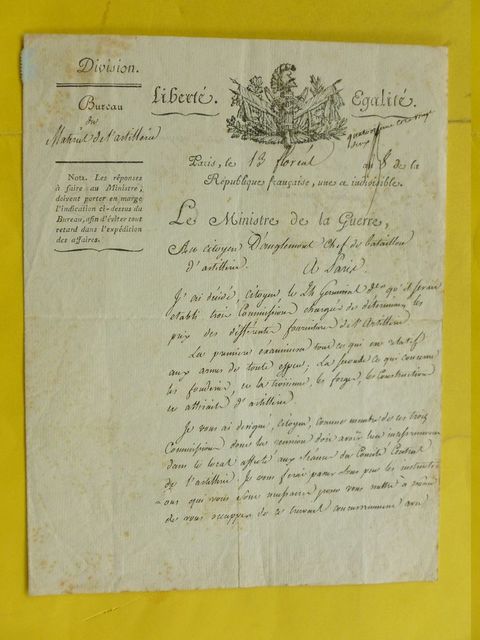 Division.
Bureau
du
Matériel de l'artillerie
Liberté.
Egalité.
Paris, le 13 floréal an 8 de la
République française, une et indivisible.
Nota. Les réponses
à faire au Ministre,
doivent porter en marge
l'indication ci-dessus du
Bureau, afin d'éviter tout
retard dans l'expédition
des affaires.
Le Ministre de la Guerre,
Au citoyen Chef de bataillon
d'artillerie.
A Paris.
J'ai décidé, citoyen, le 24 Germinal dr. qu'il serait
établi trois Commissions chargées de déterminer les
prix des différentes fournitures de l'Artillerie.
La première examinera tout ce qui est relatif
aux armes de toute espèce, la seconde ce qui concerne
les fonderies, et la troisième, les forges, les Constructions
et attirails d'artillerie.
Je vous ai désigné, citoyen, comme membre de ces trois
Commissions dont la réunion doit avoir lieu incessamment
dans le local affecté aux séances du Comité Central
de l'artillerie. Je vous ferai passer sous peu les instructi-
ons qui vous sont nécessaires pour vous mettre à même
de vous occuper de ce travail concurremment avec